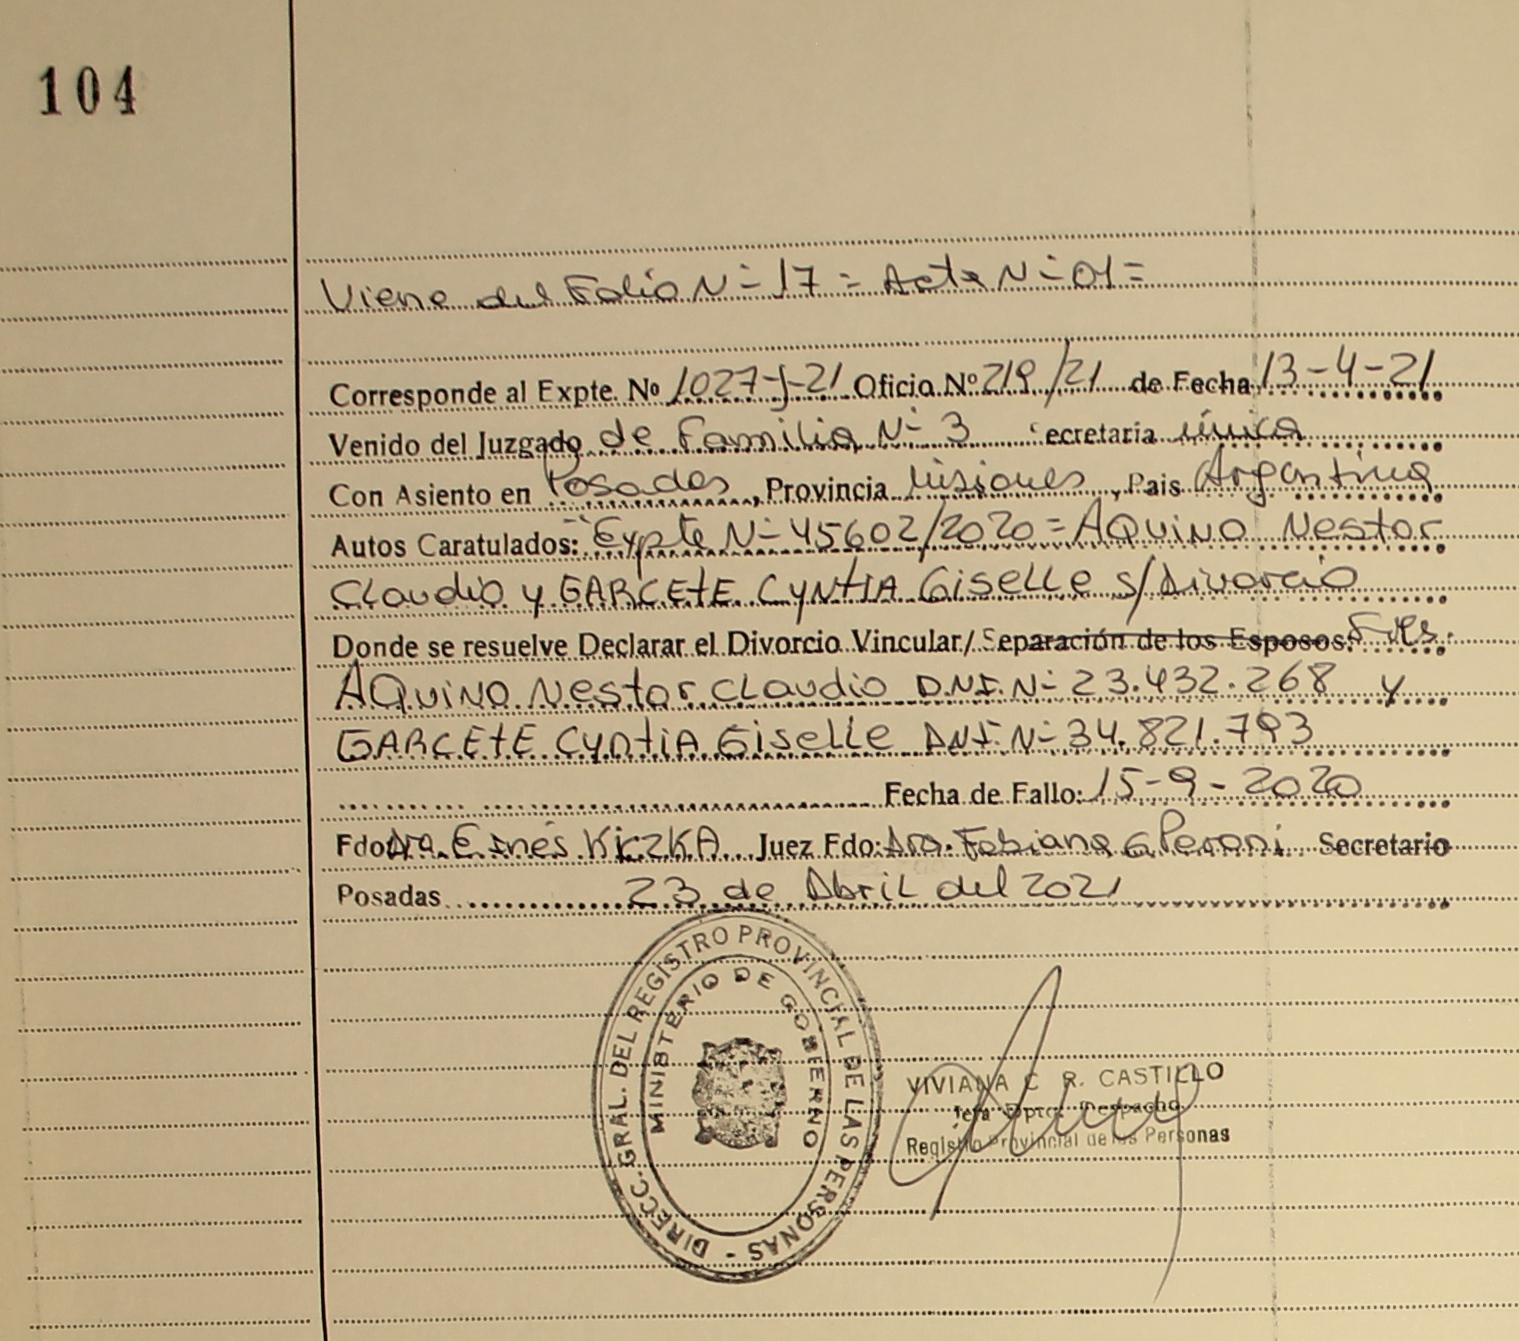 104
Viene del Folio N- 17 = Acta N- 01=
Corresponde al Expte. Nº 1027-J-21 Oficio Nº 219/21 de Fecha 13-4-21
Venido del Juzgado de Familia N- 3 Secretaria única
Con Asiento en Posadas, Provincia Misiones, Pais Argentina
Autos Caratulados: "Expte N- 45602/2020 = AQuino Nestor
Claudio y GARCEtE CyNtIA GiseLLe s/Divorcio
Donde se resuelve Declarar el Divorcio Vincular/Separación de los Esposos:
AQuiNO Nestor CLaudio D.N.I. N- 23.432.268 y
GARCEtE CyntiA GiseLLe DNI N- 34.821.793
Fecha de Fallo: 15-9-2020
Fdo: Dra. E Inés KiczKA Juez Fdo: Dra. Fabiana G Peroni Secretario
Posadas 23 de AbriL del 2021
DIRECC. GRAL. DEL REGISTRO PROVINCIAL DE LAS PERSONAS -
MINISTERIO DE GOBIERNO
VIVIANA C R. CASTILLO
Jefa Dpto. Despacho
Registro Provincial de las Personas